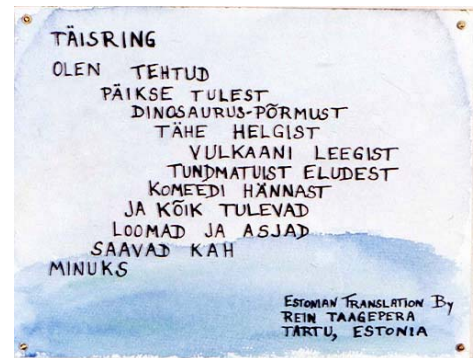 TÄISRING
OLEN TEHTUD
PÄIKSE TULEST
DINOSAURUS-PÕRMUST
TÄHE HELGIST
VULKAANI LEEGIST
TUNDMATUIST ELUDEST
KOMEEDI HÄNNAST
JA KÕIK TULEVAD
LOOMAD JA ASJAD
SAAVAD KAH
MINUKS
ESTONIAN TRANSLATION By
REIN TAAGEPERA
TARTU, ESTONIA